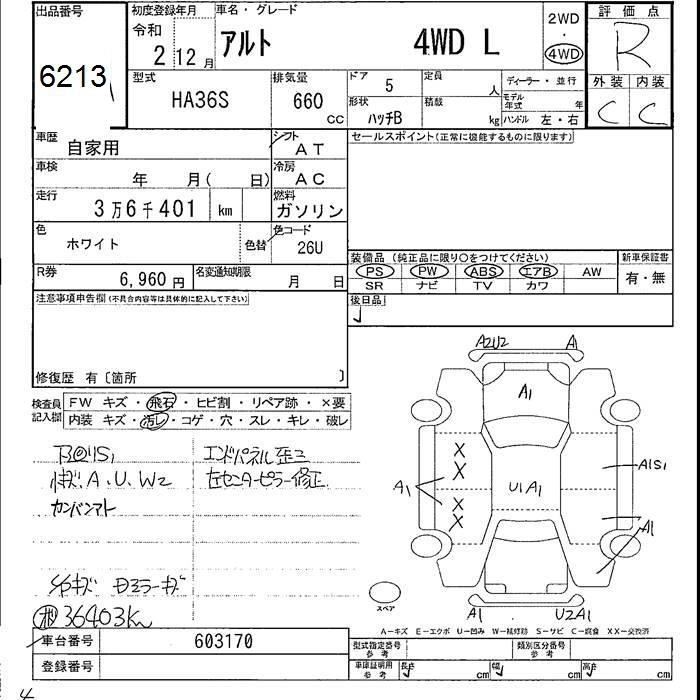 出品番号 初度登録年月 車名・グレード 評価点
6213 令和 2 12月 アルト 4WD L 2WD ・ 4WD R
型式 排気量 ドア 5 定員 人 ディーラー・並行 外装 内装
HA36S 660 CC 形状 ハッチB 積載 kg モデル年式 年 ハンドル 左・右 C C
車歴 自家用 シフト AT セールスポイント(正常に機能するものに限ります)
車検 年 月( 日) 冷房 AC
走行 3万6千401 km 燃料 ガソリン
色 ホワイト 色替 色コード 26U
装備品 (純正品に限り○をつけてください) 新車保証書
R券 6,960円 名変通知期限 月 日 PS PW ABS エアB AW 有・無
SR ナビ TV カワ
注意事項申告欄(不具合内容等は具体的に記入して下さい) 後日品
修復歴 有〔箇所 〕
検査員記入欄 FW キズ・飛石・ヒビ割・リペア跡・×要
内装 キズ・汚レ・コゲ・穴・スレ・キレ・破レ
A2U2 A1
A1
エンドパネル歪ミ
A.U.W2 左センターピラー修正
カンバンアト
X X X X
A1 U1A1 A1S1
A1
ミラーキズ
36403Km
スペア
A1 U2A1
A-キズ E-エクボ U-凹み W-補修跡 S-サビ C-腐食 XX-交換済
車台番号 603170 型式指定番号 参考 類別区分番号 参考
登録番号 車庫証明用 参考 長さ cm 幅 cm 高さ cm
4